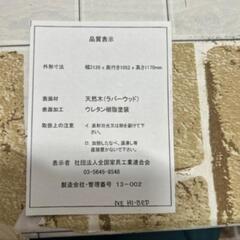 品質表示
外形寸法 幅2130 x 奥行き1052 x 高さ1170mm
表面材 天然木（ラバーウッド）
表面加工 ウレタン樹脂塗装
取扱上の注意 イ 直射日光又は熱を避けて下さい。
表示者 社団法人全国家具工業連合会
03-5645-8548
製造会社・管理番号 13-002